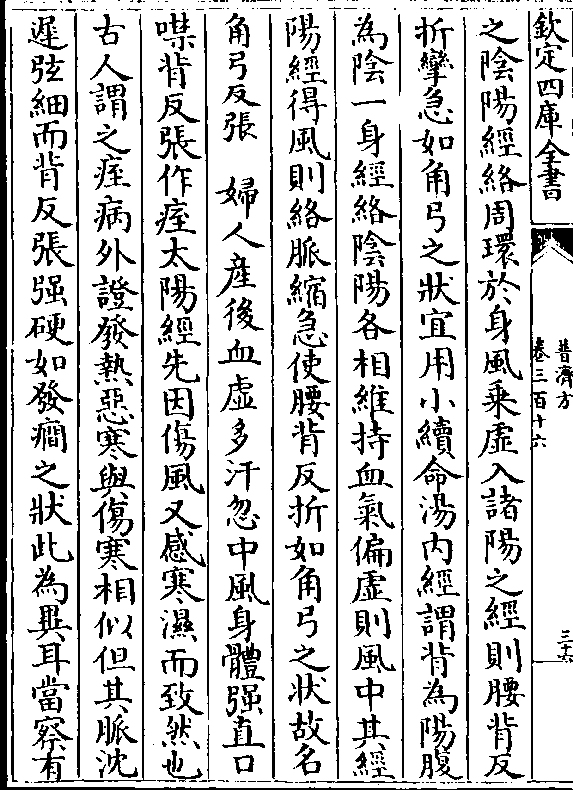 欽定四庫全書
普濟方
卷三百十六
三十六
之陰陽經絡周環於身風乘虛入諸陽之經則腰背反
折攣急如角弓之狀宜用小續命湯内經謂背為陽腹
為陰一身經絡陰陽各相維持血氣偏虛則風中其經
陽經得風則絡脈縮急使腰背反折如角弓之狀故名
角弓反張　婦人産後血虛多汗忽中風身體强直口
噤背反張作痓太陽經先因傷風又感寒濕而致然也
古人謂之痓病外證發熱惡寒與傷寒相似但其脈沈
遲弦細而背反張强硬如發癎之狀此為異耳當察有